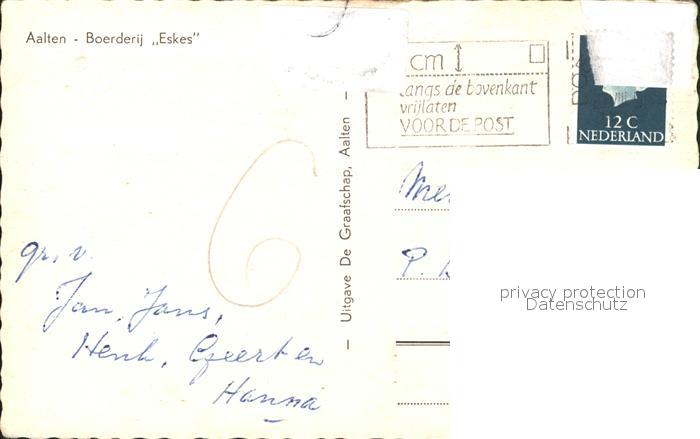 Aalten - Boerderij „Eskes"
cm
langs de bovenkant
vrijlaten
VOOR DE POST
12 C
NEDERLAND
— Uitgave De Graafschap, Aalten —
6
gr. v.
Jan, Jans,
Henk, Geert en
Hanna
P.
privacy protection
Datenschutz